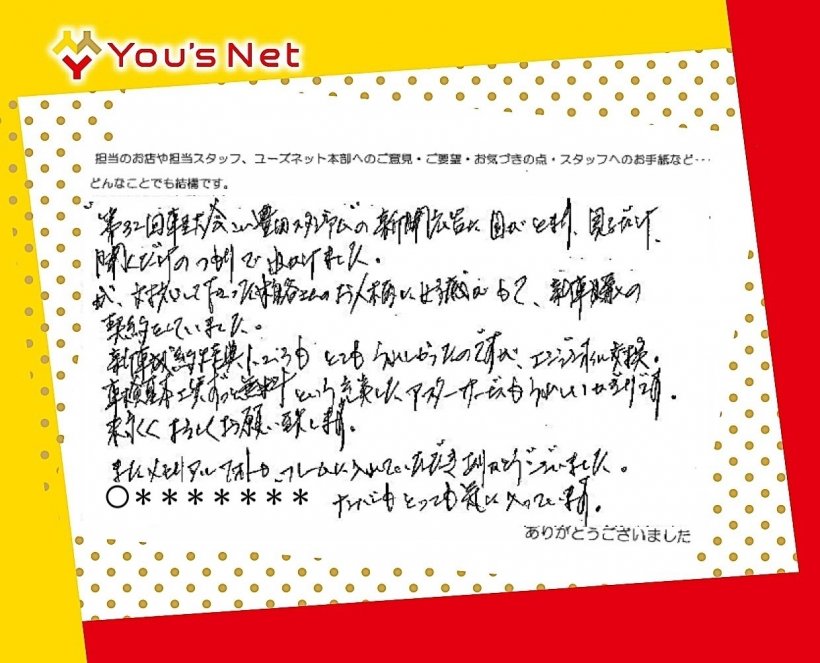 You's Net
担当のお店や担当スタッフ、ユーズネット本部へのご意見・ご要望・お気づきの点・スタッフへのお手紙など・・・
どんなことでも結構です。
"第32回車大会 in 豊田スタジアム"の新聞広告に目がとまり、見るだけ、
聞くだけのつもりで出かけました。
が、対応して下さったのお人柄に好感がもて、新車購入の
契約をしていました。
新車成約特典もとてもうれしかったのですが、エンジンオイル交換。
車検基本工賃ずっと無料という充実したアフターサービスもうれしいかぎりです。
末永くよろしくお願い致します。
またメモリアルフォトもフレームに入れていただきありがとうございました。
○******* ナンバーもとっても気に入っています。
ありがとうございました